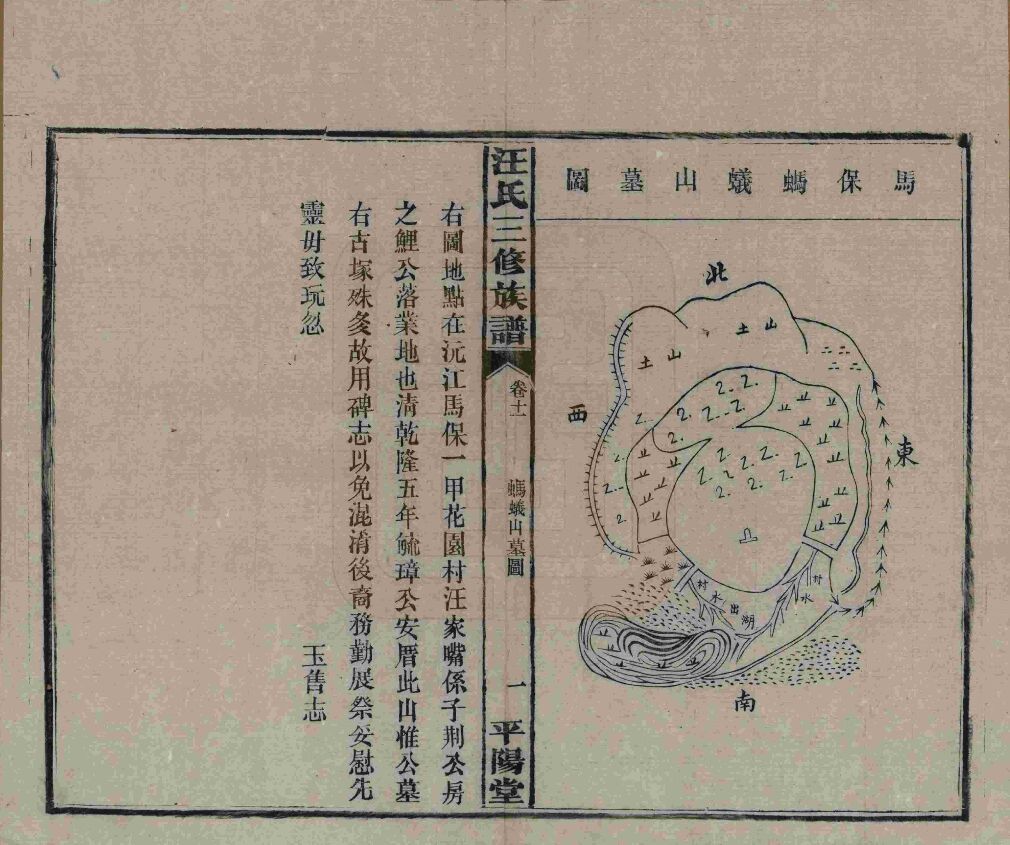 馬保螞蟻山墓圖
北
山土
山土
西
東
村水出湖
村水
南
汪氏三修族譜
卷十一
螞蟻山墓圖
一
平陽堂
右圖地點在沅江馬保一甲花園村汪家嘴係子荆公房
之鯉公落業地也清乾隆五年毓璋公安厝此山惟公墓
右古塚殊多故用碑志以免混淆後裔務勤展祭妥慰先
靈毋致玩忽
玉售志